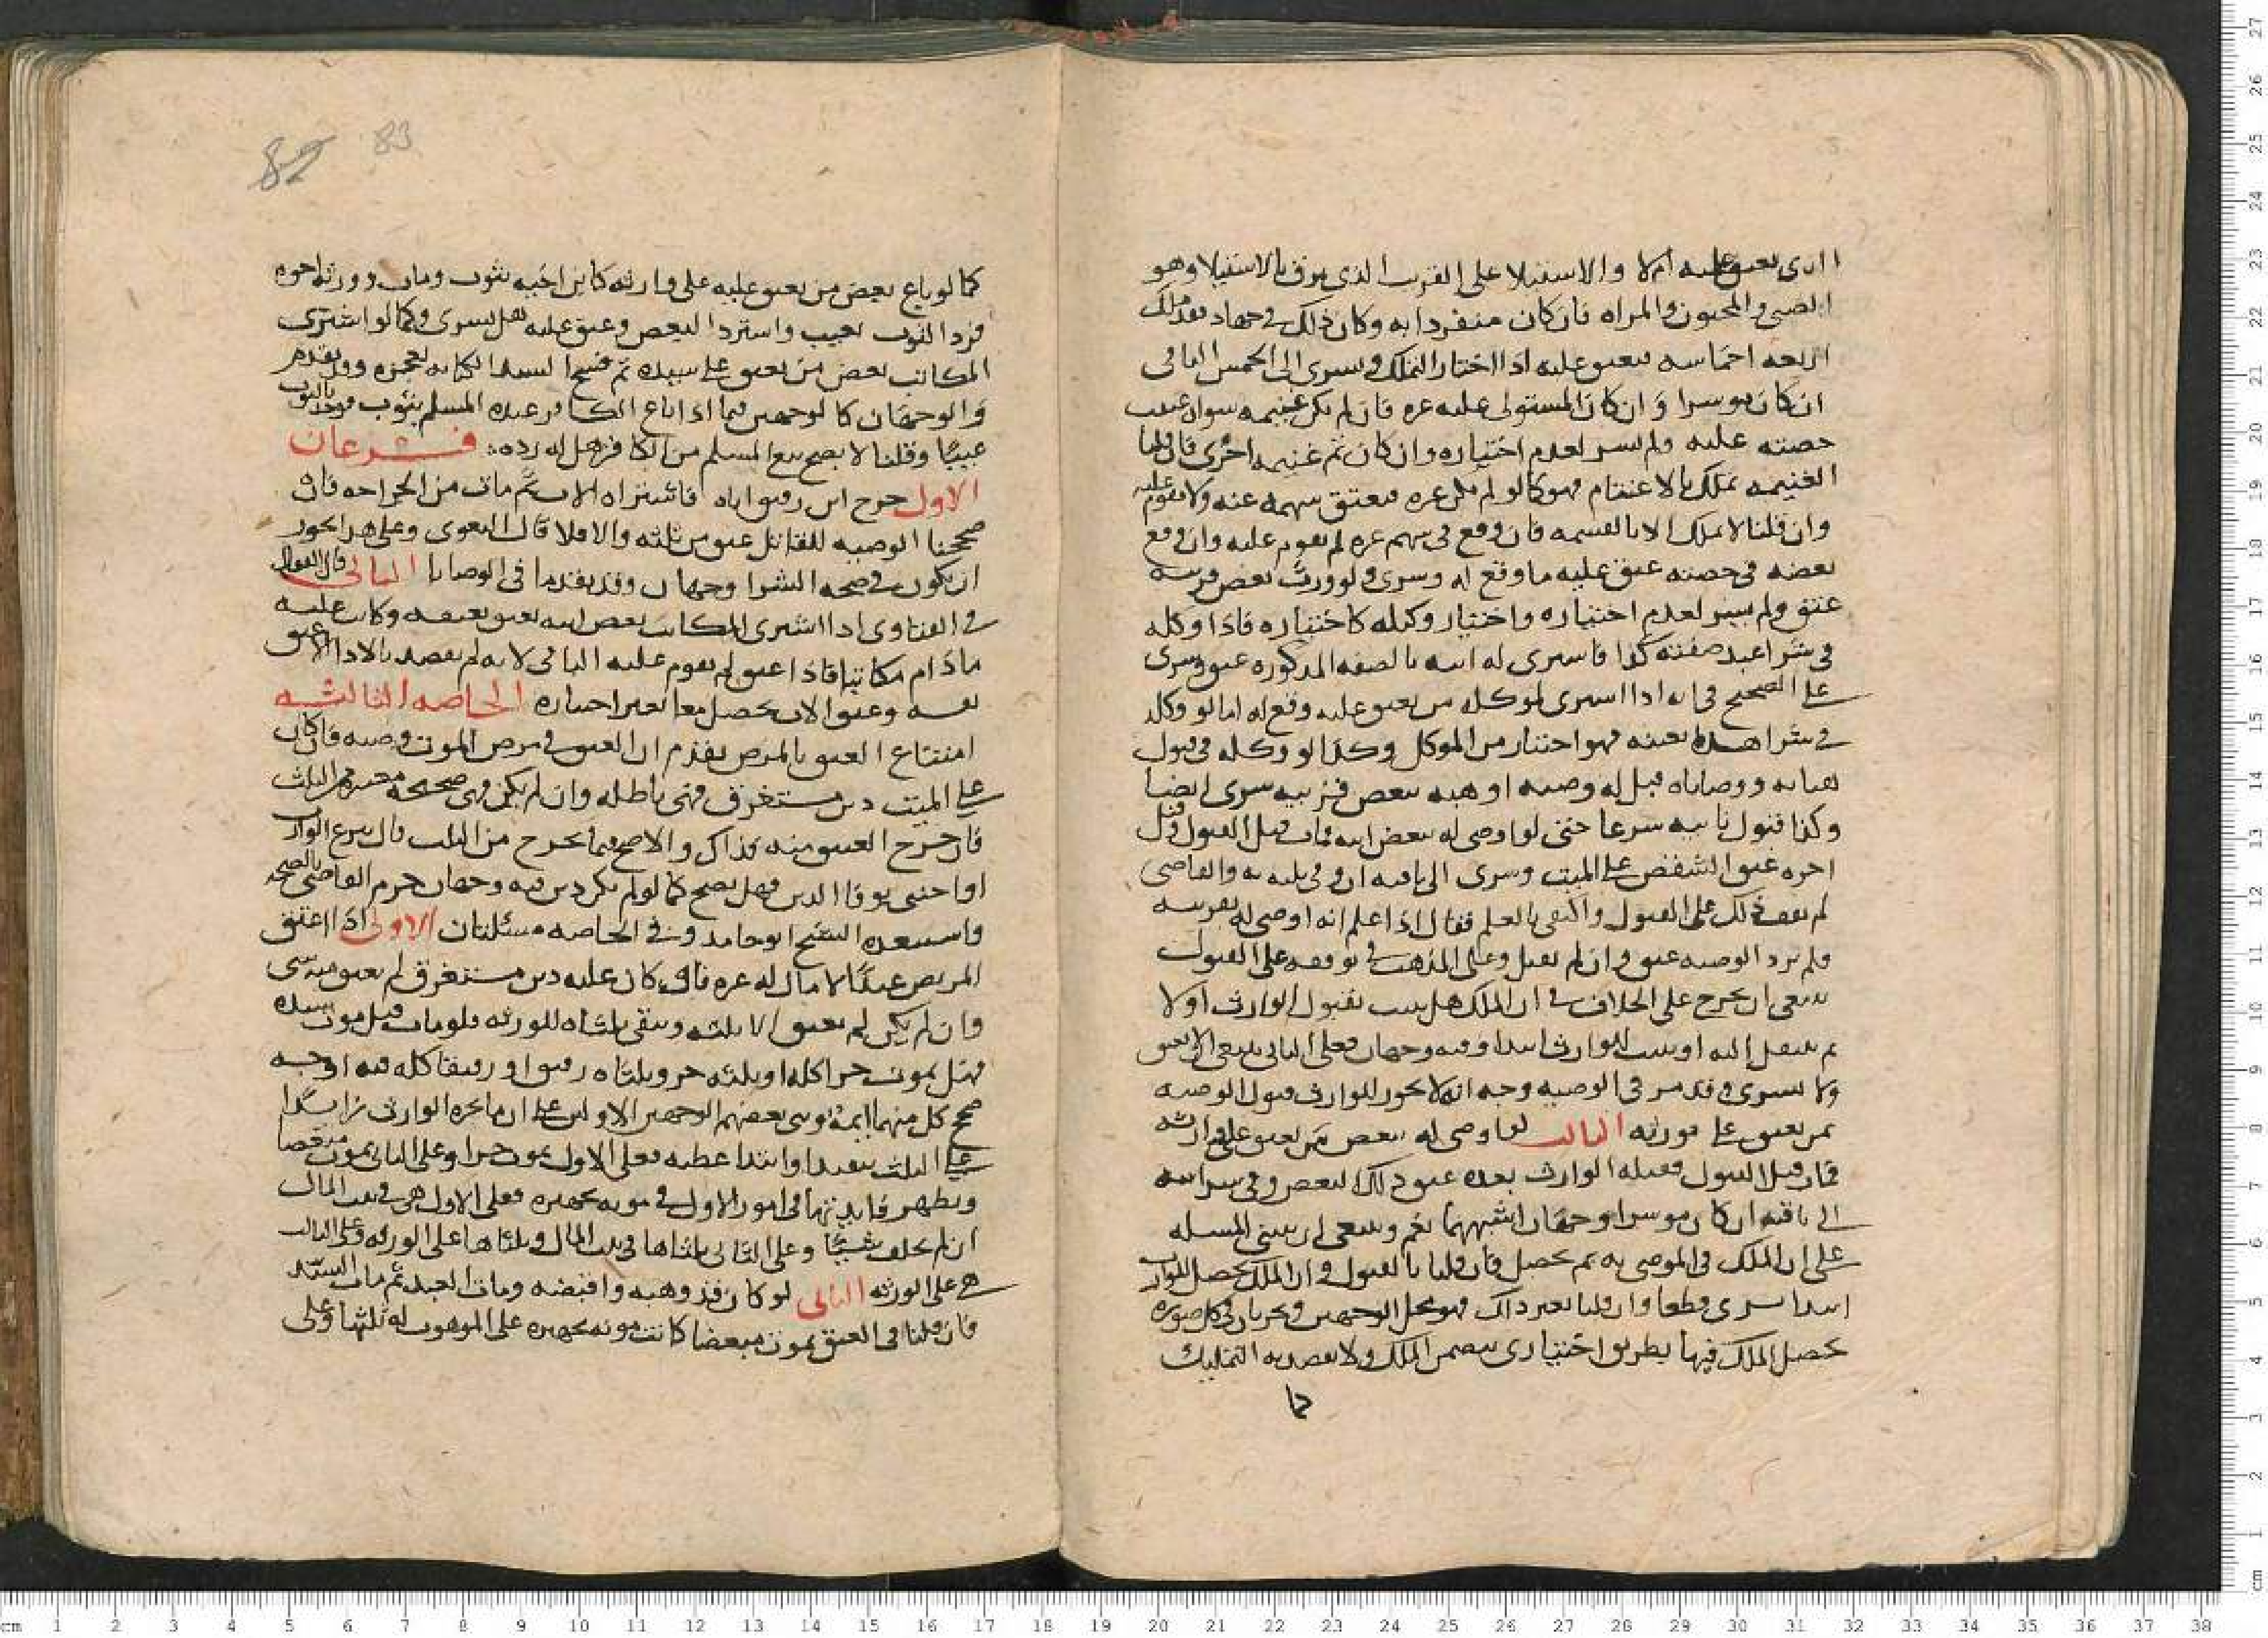 الذي يعتق عليه ام لا والاستيلا على القريب الذي يرق بالاستيلا وهو
الصبي والمجنون والمراه فان كان منفردا به وكان ذلك في جهاد فقد ملك
اربعه اخماسه فيعتق عليه اذا اختار التملك ويسري الى الخمس الباقي
ان كان موسرا وان كان المستولي عليه غيره فان لم يكن غنيمه سواه عتقت
حصته عليه ولم يسر لعدم اختياره وان كان ثم غنيمه اخرى فان قلنا
الغنيمه تملك بالاغتنام فهو كما لو لم يكن غيره فيعتق سهمه عنه ولا يقوم عليه
وان قلنا لا تملك الا بالقسمه فان وقع في سهم غيره لم يقوم عليه وان وقع
بعضه في حصته عتق عليه ما وقع له وسرى ولو ورث بعض قريبه
عتق ولم يسر لعدم اختياره واختيار وكيله كاختياره فاذا وكله
في شرا عبد صفته كذا فاشترى له ابنه بالصفه المذكوره عتق وسرى
على الصحيح في انه اذا اشترى لموكله من يعتق عليه وقع له اما لو وكله
في شرا هذا بعينه فهو اختيار من الموكل وكذا لو وكله في قبول
هباته ووصاياه فقبل له وصيه او هبه ببعض قريبه سرى ايضا
وكذا قبول نايبه شرعا حتى لو اوصى له ببعض ابنه فمات قبل القبول وقبل
اخوه عتق الشقص على الميت وسرى الى باقيه ان وفى ثلثه به والقاضي
لم يقف ذلك على القبول واكتفى بالعلم فقال اذا علم انه اوصي له بقريبه
فلم يرد الوصيه عتق وان لم يقبل وعلى المذهب في توقفه على القبول
ينبغي ان يخرج على الخلاف في ان الملك هل يثبت بقبول الوارث اولا
ثم ينتقل اليه او يثبت للوارث ابتدا وفيه وجهان فعلى الثاني ينبغي ان لا يعتق
ولا يسري وقد مر في الوصيه وجه انه لا يجوز للوارث قبول الوصيه
بمن يعتق على مورثه الثالث لو اوصي له ببعض من يعتق على وارثه
فمات قبل القبول فقبله الوارث بعده عتق ذلك البعض وفي سرايته
الى باقيه ان كان موسرا وجهان اشبههما نعم وينبغي ان يبنى المسله
على ان الملك في الموصى به بم يحصل فان قلنا بالقبول وان الملك يحصل للوارث
ابتدا سرى قطعا وان قلنا بغير ذلك فهو محل الوجهين ويجريان في كل صوره
يحصل الملك فيها بطريق اختياري يتضمن الملك ولا يقصد به التمليك
كما
83
82
كما لو باع بعض من يعتق عليه على وارثه كابن اخيه بثوب ومات وورثه اخوه
فرد الثوب بعيب واسترد البعض وعتق عليه هل يسري وكما لو اشترى
المكاتب بعض من يعتق على سيده ثم فسخ السيد الكتابه لعجزه وقد تقدم
والوجهان كالوجهين فيما اذا باع الكافر عبده المسلم بثوب فوجد بالثوب
عيبا وقلنا لا يصح بيع المسلم من الكافر هل له رده فرعان
الاول جرح ابن رقيق اباه فاشتراه الاب ثم مات من الجراحه فان
صححنا الوصيه للقاتل عتق من ثلثه والا فلا قال البغوي وعلى هذا يجوز
ان يكون في صحه الشرا وجهان وقد تقدما في الوصايا الثاني قال القفال
في الفتاوى اذا اشترى المكاتب بعض ابنه يعتق بعتقه وكان عليه
ما دام مكاتبا فاذا اعتق لم يقوم عليه الباقي لانه لم يقصد بالادا الا عتق
نفسه وعتق الابن يحصل معا بغير اختياره الخاصه الثالثه
امتناع العتق بالمرض تقدم ان العتق في مرض الموت وصيه فان كان
على الميت دين مستغرق فهي باطله وان لم يكن فهي صحيحه معتبره من الثلث
فان خرج العتق منه فذاك والاصح فيما يخرج من الثلث فان تبرع الوارث
او اجنبي بوفا الدين فهل يصح كما لو لم يكن دين فيه وجهان جزم القاضي بالصحه
واستبعده الشيخ ابو حامد وفي الخاصه مسئلتان الاولى اذا اعتق
المريض عبدا لا مال له غيره فان كان عليه دين مستغرق لم يعتق منه شي
وان لم يكن لم يعتق الا ثلثه ويبقى ثلثاه للورثه فلو مات قبل موت سيده
فهل يموت حرا كله او ثلثه حر وثلثاه رقيق او رقيقا كله فيه اوجه
صحح كل منهما ايمه وبنى بعضهم الوجهين الاولين على ان ما يجيزه الوارث زايدا
على الثلث تنفيذ او ابتدا عطيه فعلى الاول يموت حرا وعلى الثاني يموت مبعضا
وتظهر فايدتهما في امور الاول في مونه تجهيزه فعلى الاول هي في بيت المال
ان لم يخلف شيئا وعلى الثاني ثلثها في بيت المال وثلثاها على الورثه وعلى الثالث
هي على الورثه الثاني لو كان قد وهبه واقبضه ومات العبد ثم مات السيد
فان قلنا في العتق يموت مبعضا كانت مونه تجهيزه على الموهوب له ثلثها وعلى